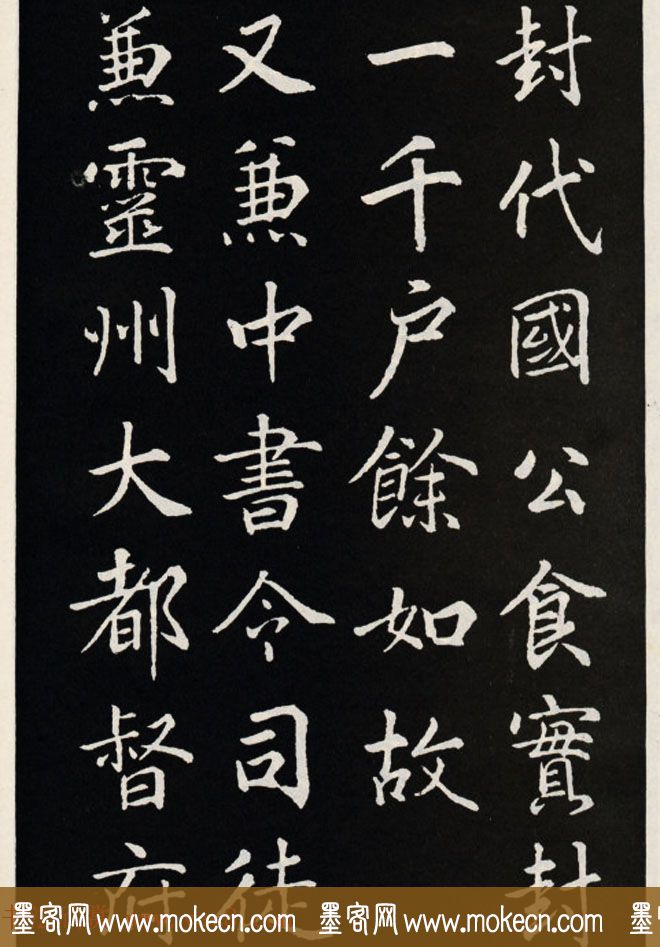 封代國公食實封
一千戶餘如故
又兼中書令司徒
兼靈州大都督府
墨客网 www.mokecn.com 墨客网 www.mokecn.com 墨客网